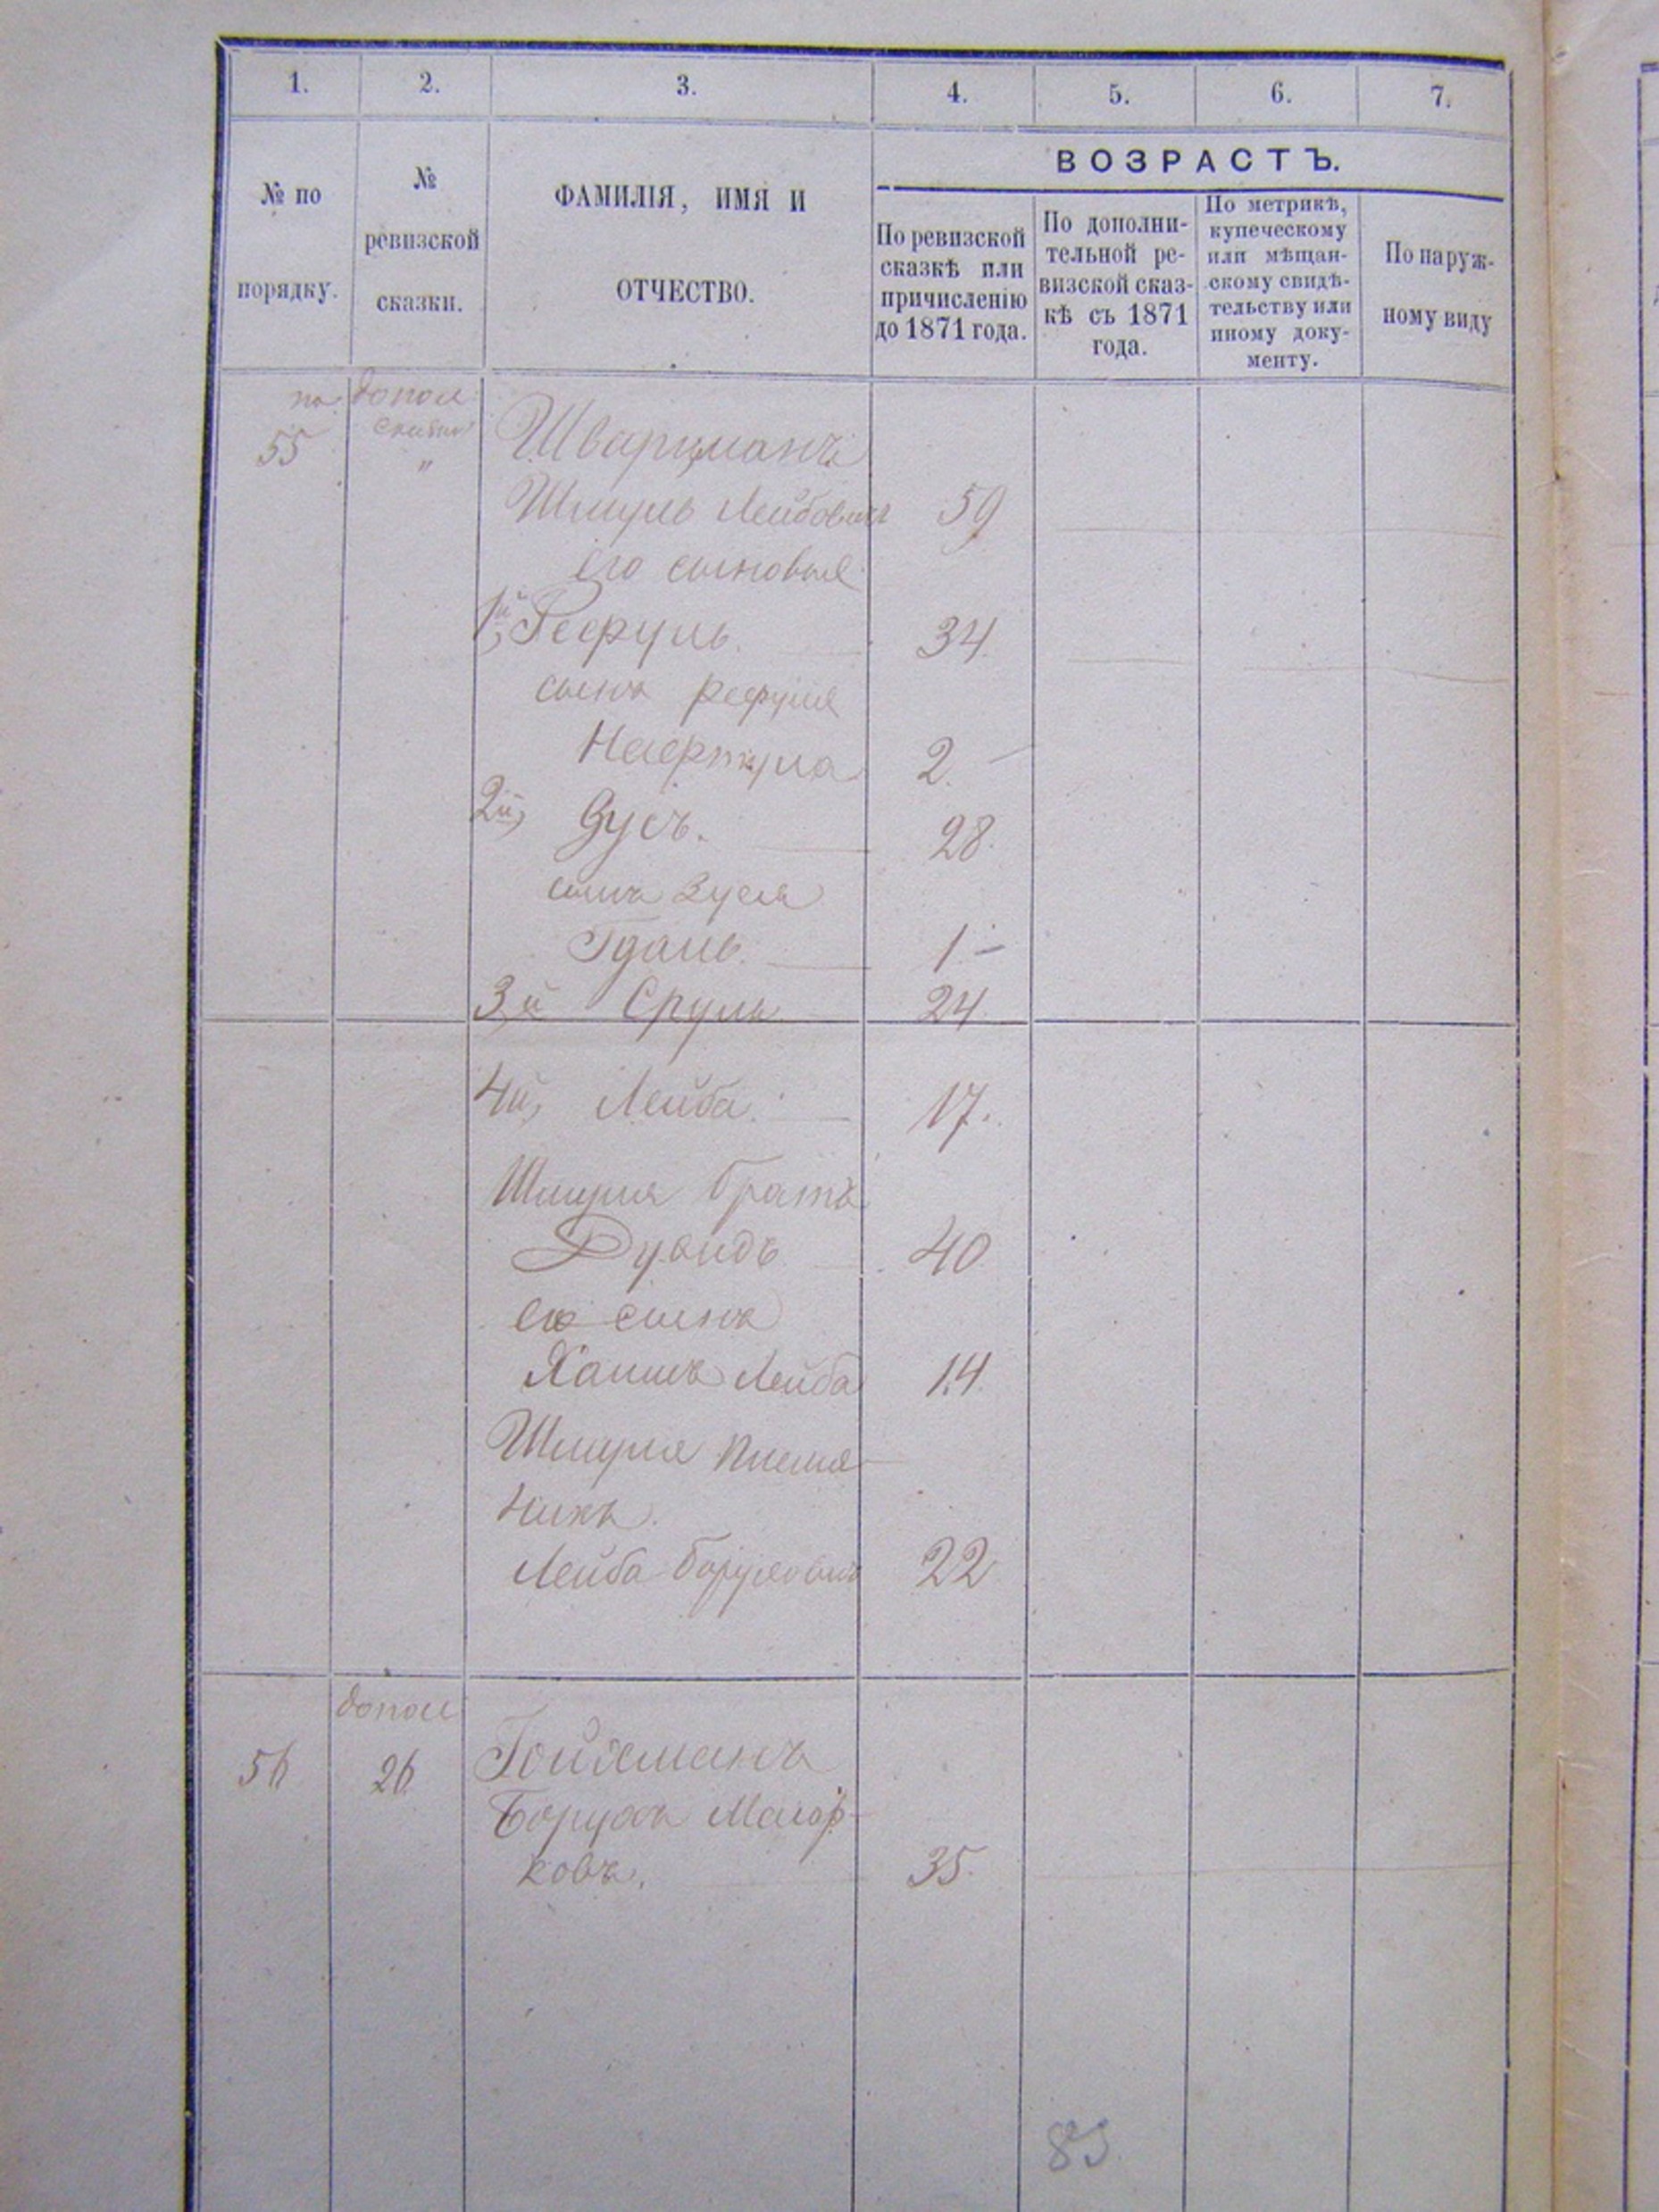 1. 2. 3. 4. 5. 6. 7.
№ по порядку.
№ ревизской сказки.
ФАМИЛІЯ, ИМЯ И ОТЧЕСТВО.
ВОЗРАСТЪ.
По ревизской сказкѣ или причисленію до 1871 года.
По дополнительной ревизской сказкѣ съ 1871 года.
По метрикѣ, купеческому или мѣщанскому свидѣтельству или иному документу.
По наружному виду
по допол
сказки
55 " Шварцманъ
Шмуль Лейбовъ 59
его сыновья
1й, Рефуль. 34.
сынъ Рефуля
Нафтула 2.
2й, Зусь. 28.
сынъ Зуся
Гдаль. 1
3й Сруль 24
4й, Лейба. 17.
Шмуля братъ
Дувидъ 40
его сынъ
Хаимъ Лейба 14.
Шмуля племя-
никъ.
Лейба Боруховъ 22
допол
56 26. Гойхманъ
Борухъ Маюр-
ковъ. 35.
83